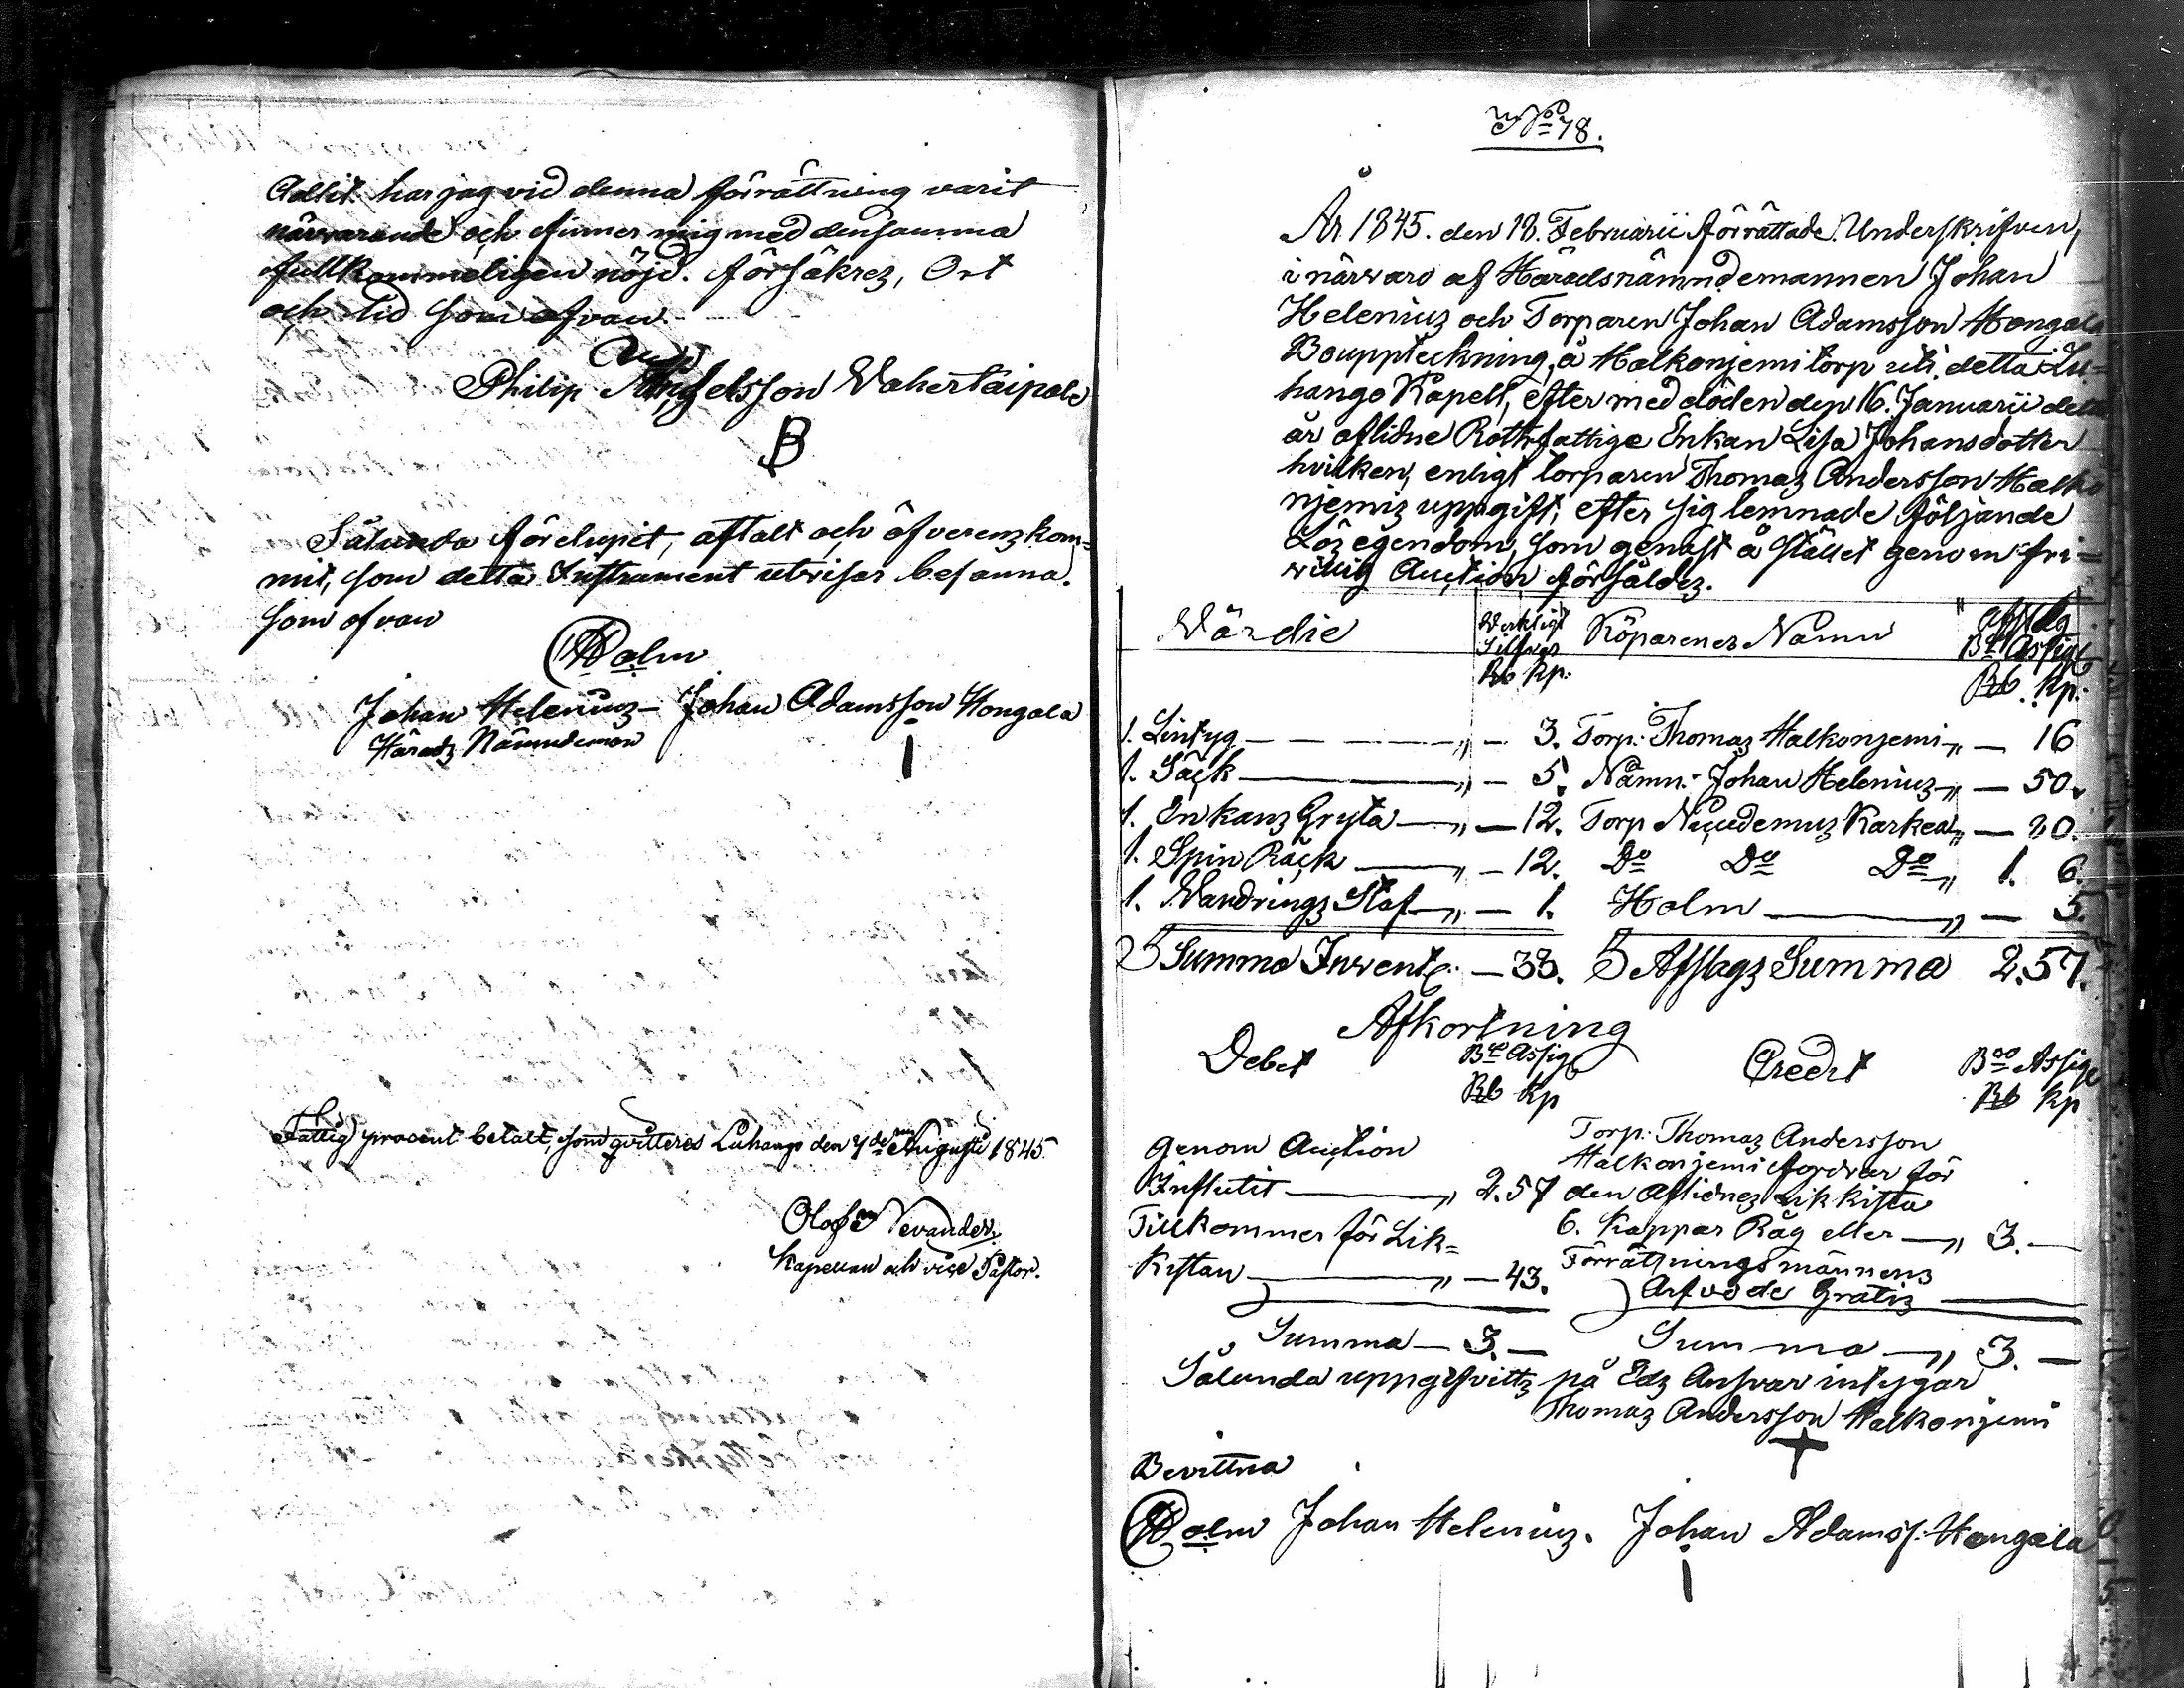 Altit har jag vid denna förrättning varit
närvarande och finner mig med densamma
fullkommeligen nöjd. försäkrez, Ort
och tid som ofvan
Philip Mangelsson Vahertaipale
B
Sålunda förelupit, aftalt och öfverenzkom=
mit, som detta Instrument utvisar besanna.
som ofvan
Holm
Johan Heleniuz – Johan Adamsson Hongala
Häradz Nämndeman
Fattig procent betalt, som qvitteres Luhango den 7de Augusti 1845.
Olof Nevander
Kapellan och vice Pastor.
No 78.
År 1845. den 18. Februarii förrättade Underskrifven,
i närvaro af Häradsnämndemannen Johan
Heleniuz och Torparen Johan Adamsson Hongala
Bouppteckning, å Halkonjemi torp uti detta Lu=
hango Kapell, efter med döden den 16. Januarii detta
år aflidne Rothfattige Enkan Lisa Johansdotter
hvilken, enligt torparen Thomaz Andersson Halko
njemiz uppgift, efter sig lemnade följande
Löz egendom, som genast å stället genom fri=
villig Auction försäldez.
Värdie Verkligt Silfver Köparenes Namn afslag Bco Assig
Rb Kp. Rb. Kp.
1. Lintyg — — — " – 3. Torp: Thomaz Halkonjemi " — 16
1. Säck — " – 5. Nämn: Johan Heleniuz " — 50.
1. Enkanz Gryta — " — 12. Torp Nicudemuz Karkea " — 80.
1. Spin Råck — " – 12. Do Do Do " 1. 6.
1. Vandringz Staf — " — 1. Holm — " — 5
5 Summa Invent. — 33. 5 Afslagz Summa 2.57.
Afkortning
Debet Bco Assig Credit Bco Assig
Rb Kp Rb Kp
Genom Auction
Influtit — " 2.57
Tillkommer för Lik=
Kistan — " — 43.
Torp: Thomaz Andersson
Halkonjemi fordrar för
den Aflidnez Likkista
6. Kappar Råg eller — " 3. —
Förrättningsmännens
Arfvode Gratis —
Summa — 3. — Summa — " 3. —
Sålunda uppgifvittz på Edz Ansvar intygar
Thomaz Andersson Halkonjemi
+
Bevittna
Holm Johan Heleniuz. Johan Adamss. Hongala